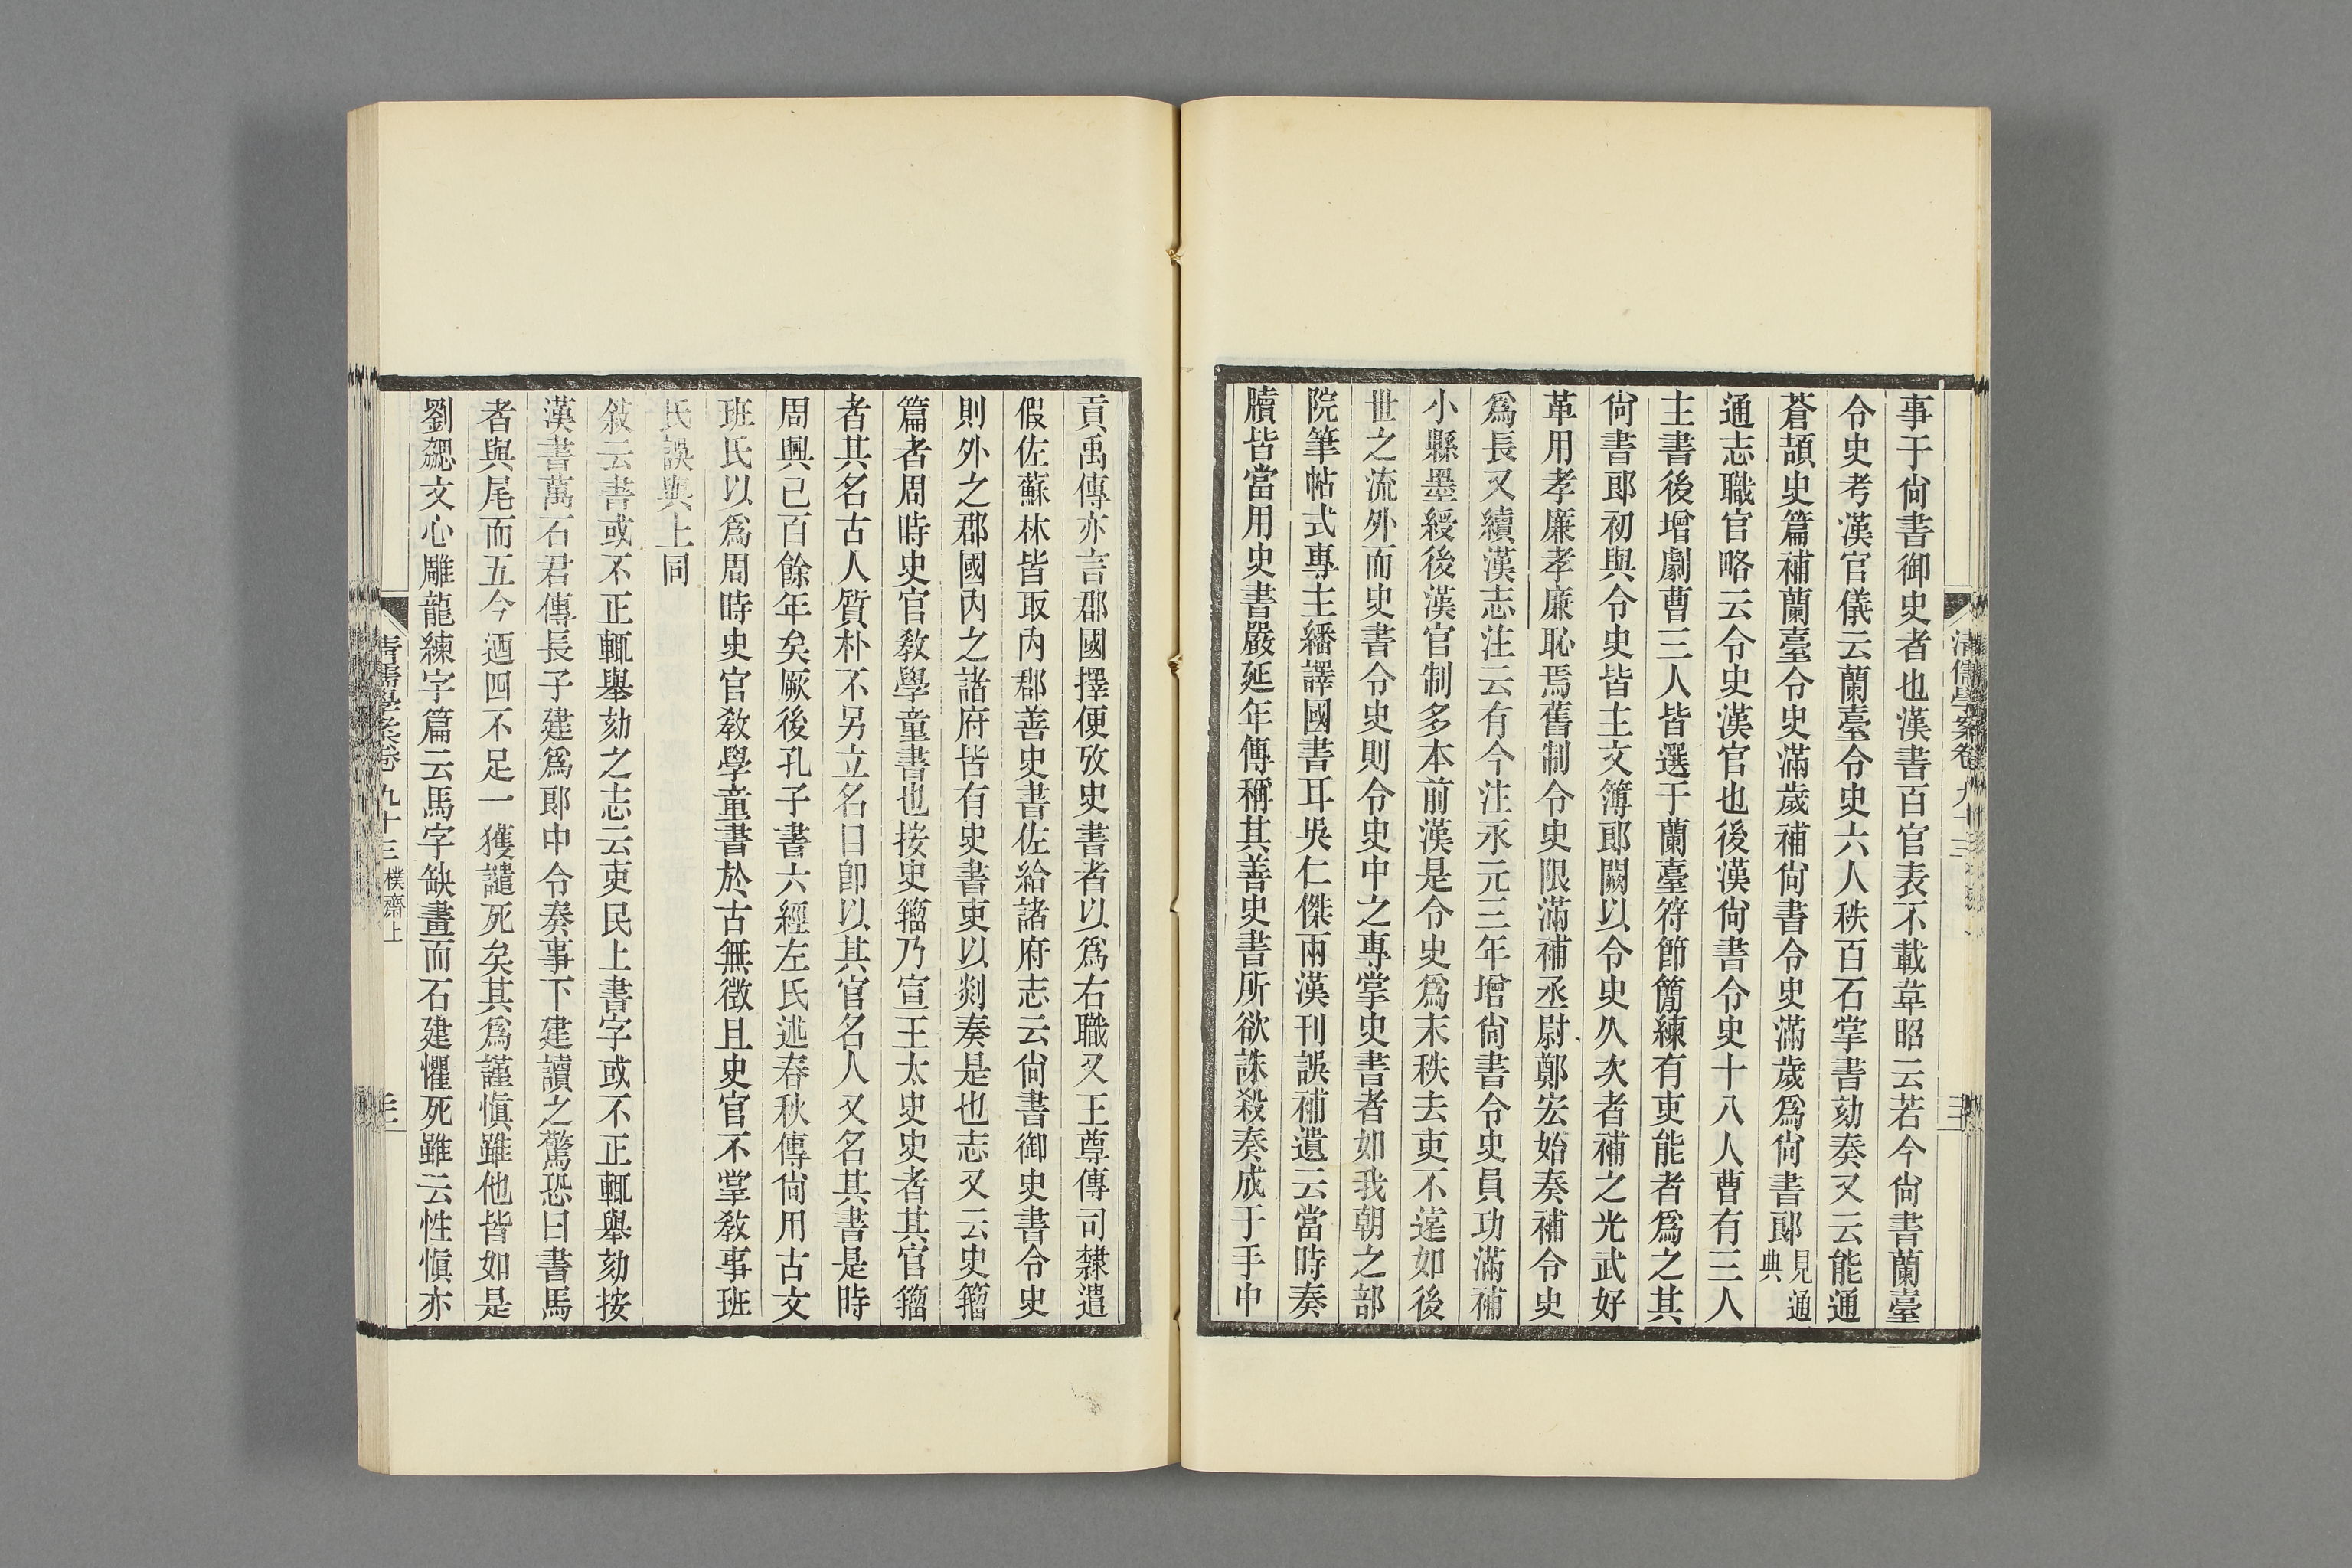 事于尙書御史者也漢書百官表不載韋昭云若今尙書蘭臺
令史考漢官儀云蘭臺令史六人秩百石掌書劾奏又云能通
蒼頡史篇補蘭臺令史滿歲補尙書令史滿歲爲尙書郞見通典
通志職官略云令史漢官也後漢尙書令史十八人曹有三人
主書後增劇曹三人皆選于蘭臺符節簡練有吏能者爲之其
尙書郞初與令史皆主文簿郞闕以令史久次者補之光武好
革用孝廉孝廉恥焉舊制令史限滿補丞尉鄭宏始奏補令史
爲長又續漢志注云有今注永元三年增尙書令史員功滿補
小縣墨綬後漢官制多本前漢是令史爲末秩去吏不遠如後
世之流外而史書令史則令史中之專掌史書者如我朝之部
院筆帖式專主繙譯國書耳吳仁傑兩漢刊誤補遺云當時奏
牘皆當用史書嚴延年傳稱其善史書所欲誅殺奏成于手中
貢禹傳亦言郡國擇便攷史書者以爲右職又王尊傳司隸遣
假佐蘇林皆取內郡善史書佐給諸府志云尙書御史書令史
則外之郡國內之諸府皆有史書吏以剡奏是也志又云史籀
篇者周時史官敎學童書也按史籀乃宣王太史史者其官籀
者其名古人質朴不另立名目卽以其官名人又名其書是時
周興已百餘年矣厥後孔子書六經左氏述春秋傳尙用古文
班氏以爲周時史官敎學童書於古無徵且史官不掌敎事班
氏誤與上同
敍云書或不正輒舉劾之志云吏民上書字或不正輒舉劾按
漢書萬石君傳長子建爲郞中令奏事下建讀之驚恐曰書馬
者與尾而五今迺四不足一獲譴死矣其爲謹愼雖他皆如是
劉勰文心雕龍練字篇云馬字缺畫而石建懼死雖云性愼亦
清儒學案卷九十三 樸齋上